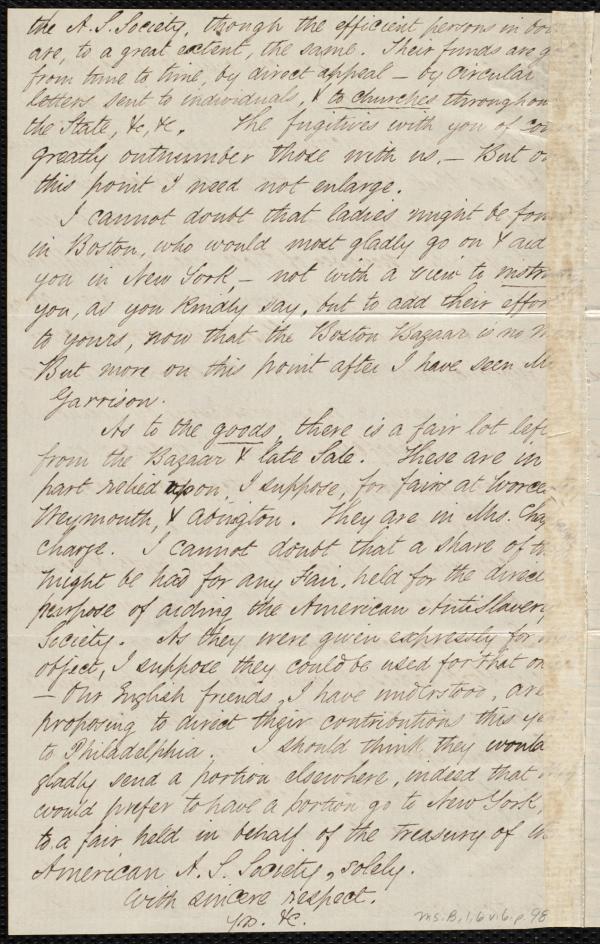 the A. S. Society, though the efficient persons in bo
are, to a great extent, the same. Their funds are g
from time to time, by direct appeal – by Circular
Letters sent to individuals, & to churches throughou
the State, &c, &c. The fugitives with you of co
greatly outnumber those with us, – But o
this point I need not enlarge.
I cannot doubt that ladies might be foun
in Boston, who would most gladly go on & aid
you in New York, – not with a view to instru
you, as you kindly say, but to add their effor
to yours, now that the Boston Bazaar is no m
But more on this point after I have seen M
Garrison.
As to the goods, there is a fair lot left
from the Bazaar & late Sale. These are in
part relied upon, I suppose, for fairs at Worce
Weymouth, & Abington. They are in Mrs. Cha
charge. I cannot doubt that a share of th
might be had for any Fair, held for the direct
purpose of aiding the American AntiSlavery
Society. As they were given expressly for
object, I suppose they could be used for that on
– Our English friends, I have understood, are
proposing to direct their contributions this ye
to Philadelphia. I should think they would
gladly send a portion elsewhere, indeed that
would prefer to have a portion go to New York,
to a fair held in behalf of the treasury of th
American A. S. Society, solely.
With sincere respect.
Yrs. &c.
Ms. B. 1. 6 v. 6. p. 98